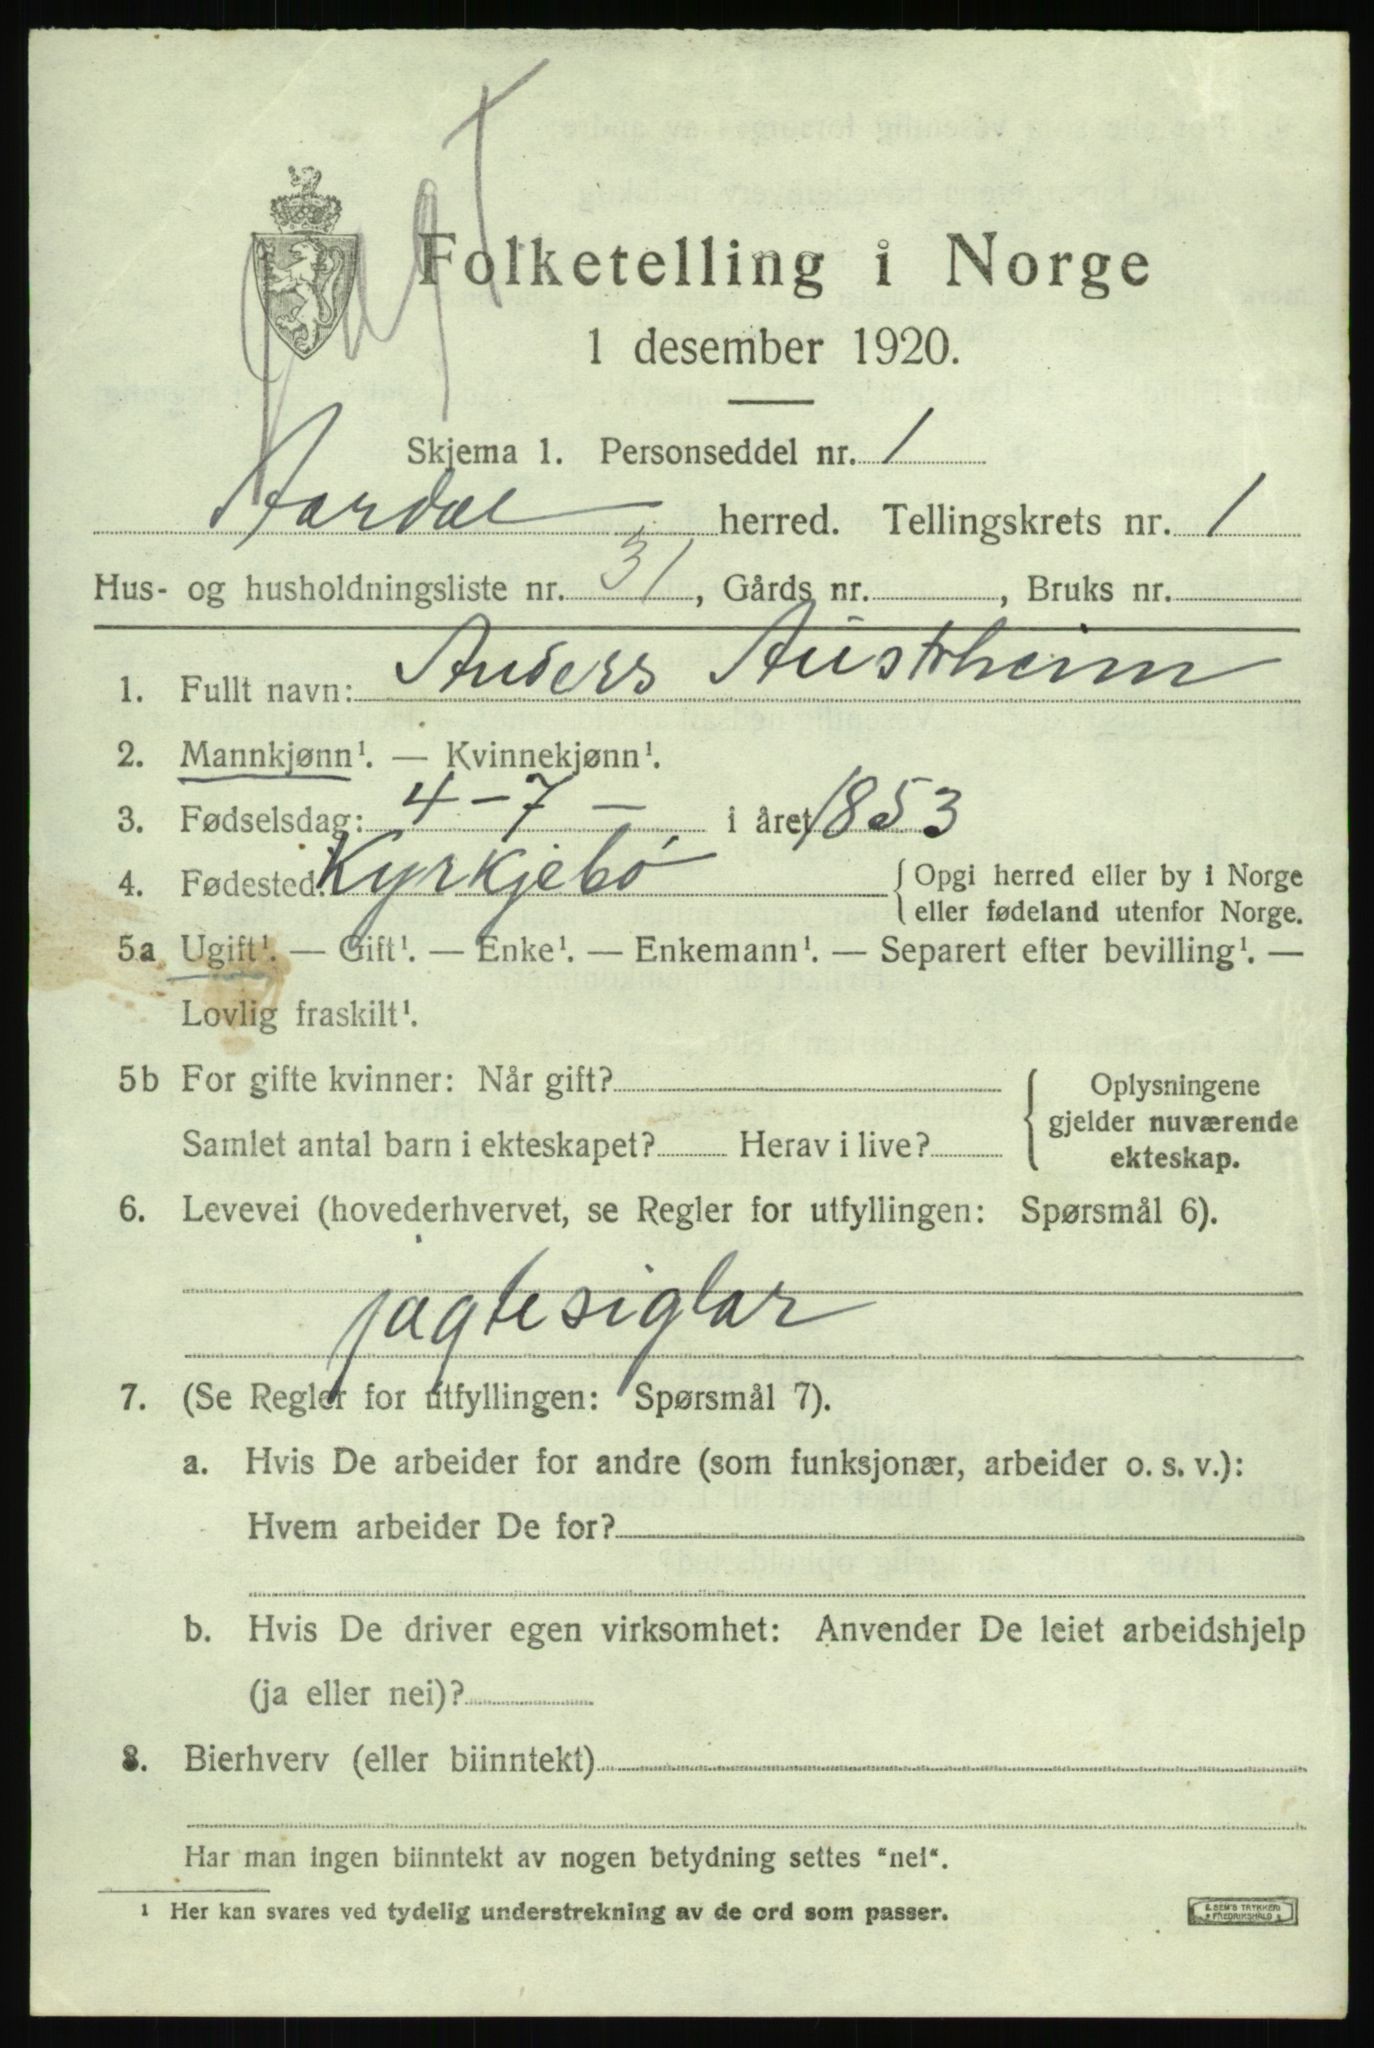 Folketelling i Norge
1 desember 1920.
Skjema 1. Personseddel nr. 1
Aardal herred. Tellingskrets nr. 1
Hus- og husholdningsliste nr. 31, Gårds nr. , Bruks nr.
1. Fullt navn: Anders Austrheim
2. Mannkjønn¹. — Kvinnekjønn¹.
3. Fødselsdag: 4 - 7 - i året 1853
4. Fødested: Kyrkjebø { Opgi herred eller by i Norge
eller fødeland utenfor Norge.
5a Ugift¹. — Gift¹. — Enke¹. — Enkemann¹. — Separert efter bevilling¹. —
Lovlig fraskilt¹.
5b For gifte kvinner: Når gift? { Oplysningene
gjelder nuværende
Samlet antal barn i ekteskapet? Herav i live?
ekteskap.
6. Levevei (hovederhvervet, se Regler for utfyllingen: Spørsmål 6).
jagtesiglar
7. (Se Regler for utfyllingen: Spørsmål 7).
a. Hvis De arbeider for andre (som funksjonær, arbeider o. s. v.):
Hvem arbeider De for?
b. Hvis De driver egen virksomhet: Anvender De leiet arbeidshjelp
(ja eller nei)?
8. Bierhverv (eller biinntekt)
Har man ingen biinntekt av nogen betydning settes "nei".
¹ Her kan svares ved tydelig understrekning av de ord som passer.
E. SEM'S TRYKKERI
FREDRIKSHALD